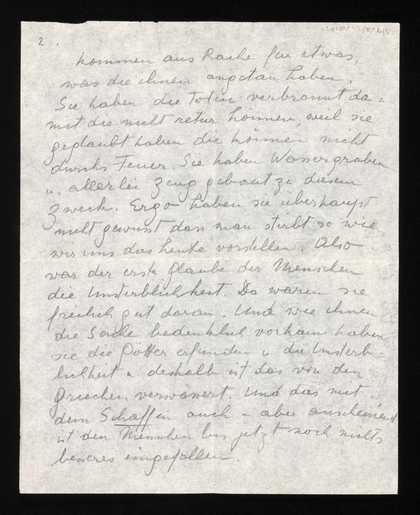 2.
kommen aus Rache für etwas,
was die ihnen angetan haben.
Sie haben die Toten verbrannt da-
mit die nicht retur können, weil sie
geglaubt haben die können nicht
durchs Feuer. Sie haben Wassergraben
u. allerlei Zeug gebaut zu diesem
Zweck. Ergo haben sie überhaupt
nicht gewusst dass man stirbt so wie
wir uns das heute vorstellen. Also
war der erste Glaube der Menschen
die Unsterblichkeit. Da waren sie
freilich gut daran. Und wie ihnen
die Sache bedenklich vorkam haben
sie die Götter erfunden u die Unsterb-
lichkeit u deshalb ist das von den
Griechen Und das mit
dem Schaffen auch - aber anscheinend
ist den Menschen bis jetzt noch nichts
besseres eingefallen.